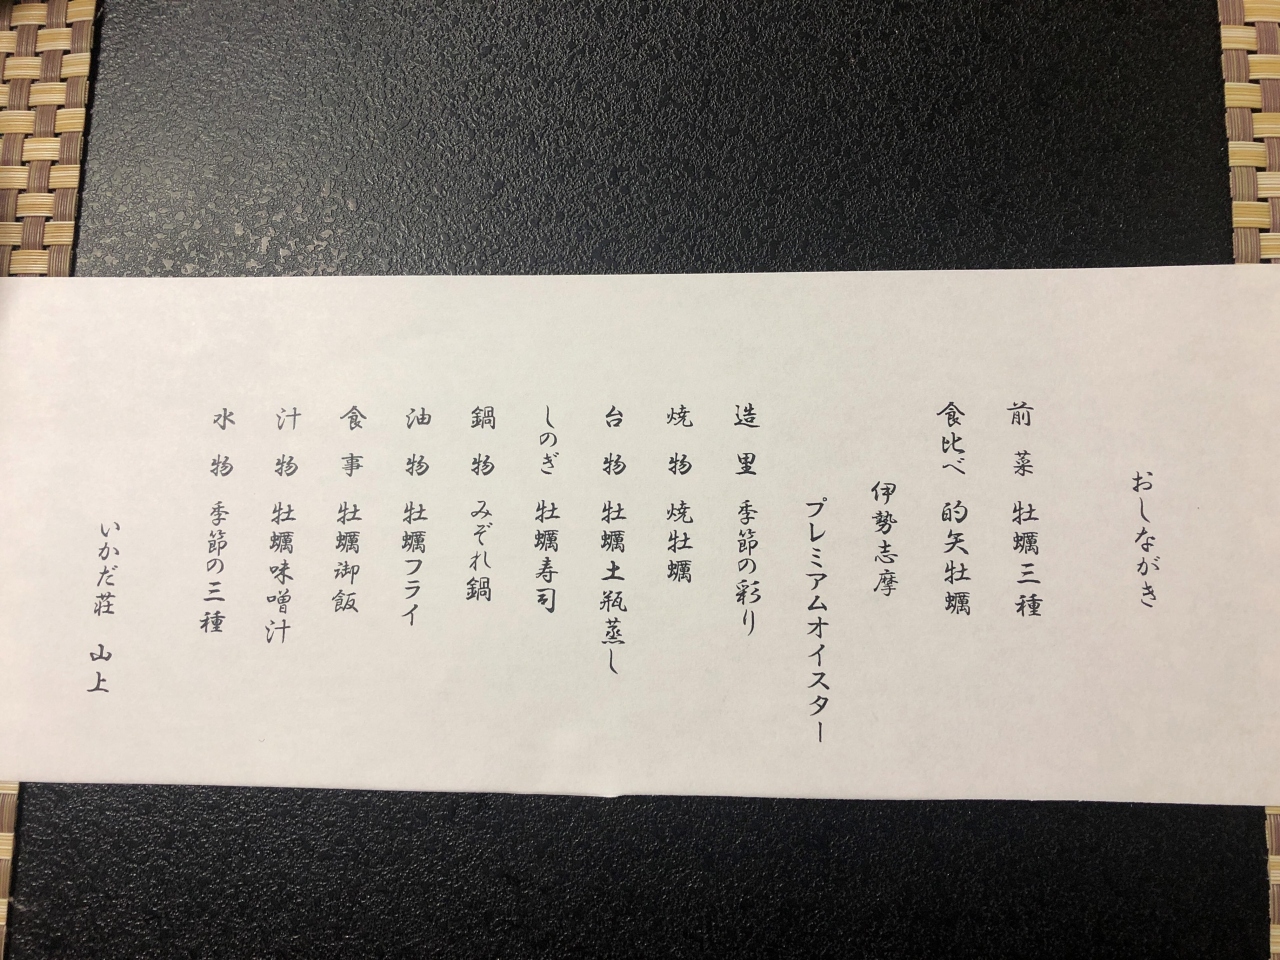 おしながき
前菜 牡蠣三種
食比べ 的矢牡蠣
伊勢志摩
プレミアムオイスター
造里 季節の彩り
焼物 焼牡蠣
台物 牡蠣土瓶蒸し
しのぎ 牡蠣寿司
鍋物 みぞれ鍋
油物 牡蠣フライ
食事 牡蠣御飯
汁物 牡蠣味噌汁
水物 季節の三種
いかだ荘 山上